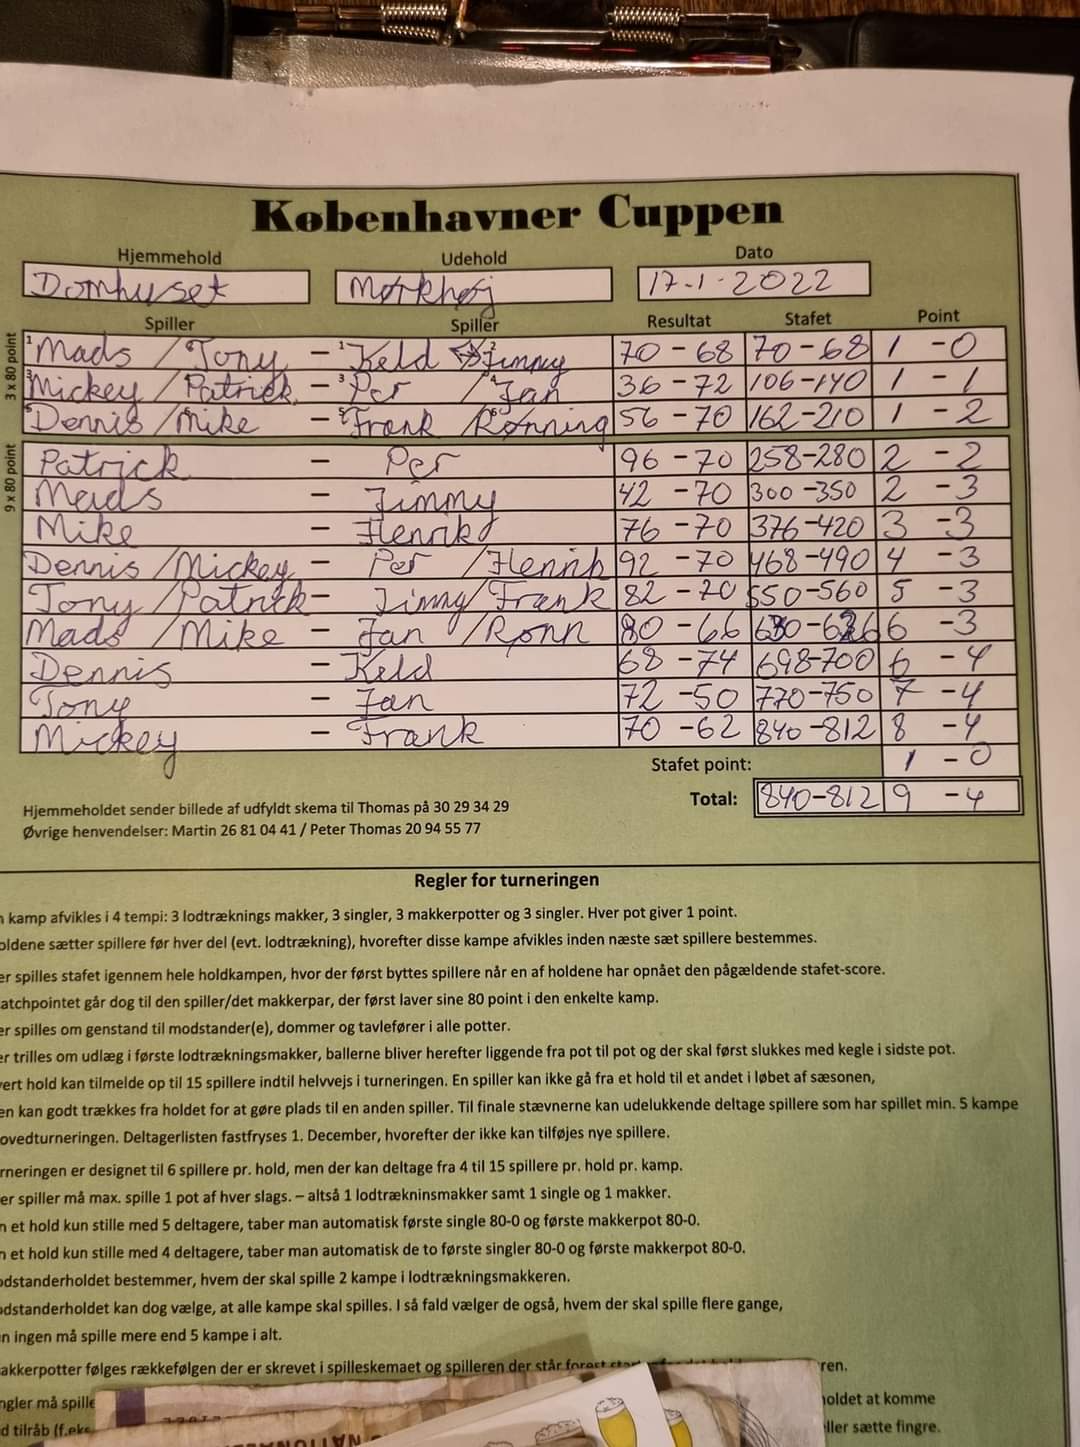 Københavner Cuppen
Hjemmehold Udehold Dato
Domhuset Mørkhøj 17-1-2022
Spiller Spiller Resultat Stafet Point
3 x 80 point
1 Mads / Tony - 1 Keld 2 Jimmy 70-68 70-68 1-0
3 Mickey / Patrick - 3 Per 4 / Jan 36-72 106-140 1-1
5 Dennis / 6 Mike - 5 Frank / 6 Rønning 56-70 162-210 1-2
9 x 80 point
Patrick - Per 96-70 258-280 2-2
Mads - Jimmy 42-70 300-350 2-3
Mike - Henrik 76-70 376-420 3-3
Dennis / Mickey - Per / Henrik 92-70 468-490 4-3
Tony / Patrick - Jimmy / Frank 82-70 550-560 5-3
Mads / Mike - Jan / Rønn 80-66 630-626 6-3
Dennis - Keld 68-74 698-700 6-4
Tony - Jan 72-50 770-750 7-4
Mickey - Frank 70-62 840-812 8-4
Stafet point: 1-0
Total: 840-812 9-4
Hjemmeholdet sender billede af udfyldt skema til Thomas på 30 29 34 29
Øvrige henvendelser: Martin 26 81 04 41 / Peter Thomas 20 94 55 77
Regler for turneringen
kamp afvikles i 4 tempi: 3 lodtræknings makker, 3 singler, 3 makkerpotter og 3 singler. Hver pot giver 1 point.
oldene sætter spillere før hver del (evt. lodtrækning), hvorefter disse kampe afvikles inden næste sæt spillere bestemmes.
er spilles stafet igennem hele holdkampen, hvor der først byttes spillere når en af holdene har opnået den pågældende stafet-score.
atchpointet går dog til den spiller/det makkerpar, der først laver sine 80 point i den enkelte kamp.
er spilles om genstand til modstander(e), dommer og tavlefører i alle potter.
er trilles om udlæg i første lodtrækningsmakker, ballerne bliver herefter liggende fra pot til pot og der skal først slukkes med kegle i sidste pot.
vert hold kan tilmelde op til 15 spillere indtil helvvejs i turneringen. En spiller kan ikke gå fra et hold til et andet i løbet af sæsonen,
en kan godt trækkes fra holdet for at gøre plads til en anden spiller. Til finale stævnerne kan udelukkende deltage spillere som har spillet min. 5 kampe
ovedturneringen. Deltagerlisten fastfryses 1. December, hvorefter der ikke kan tilføjes nye spillere.
rneringen er designet til 6 spillere pr. hold, men der kan deltage fra 4 til 15 spillere pr. hold pr. kamp.
er spiller må max. spille 1 pot af hver slags. – altså 1 lodtrækninsmakker samt 1 single og 1 makker.
n et hold kun stille med 5 deltagere, taber man automatisk første single 80-0 og første makkerpot 80-0.
n et hold kun stille med 4 deltagere, taber man automatisk de to første singler 80-0 og første makkerpot 80-0.
odstanderholdet bestemmer, hvem der skal spille 2 kampe i lodtrækningsmakkeren.
odstanderholdet kan dog vælge, at alle kampe skal spilles. I så fald vælger de også, hvem der skal spille flere gange,
n ingen må spille mere end 5 kampe i alt.
akkerpotter følges rækkefølgen der er skrevet i spilleskemaet og spilleren der står forest ren.
ngler må spille holdet at komme
d tilråb (f.eks ller sætte fingre.